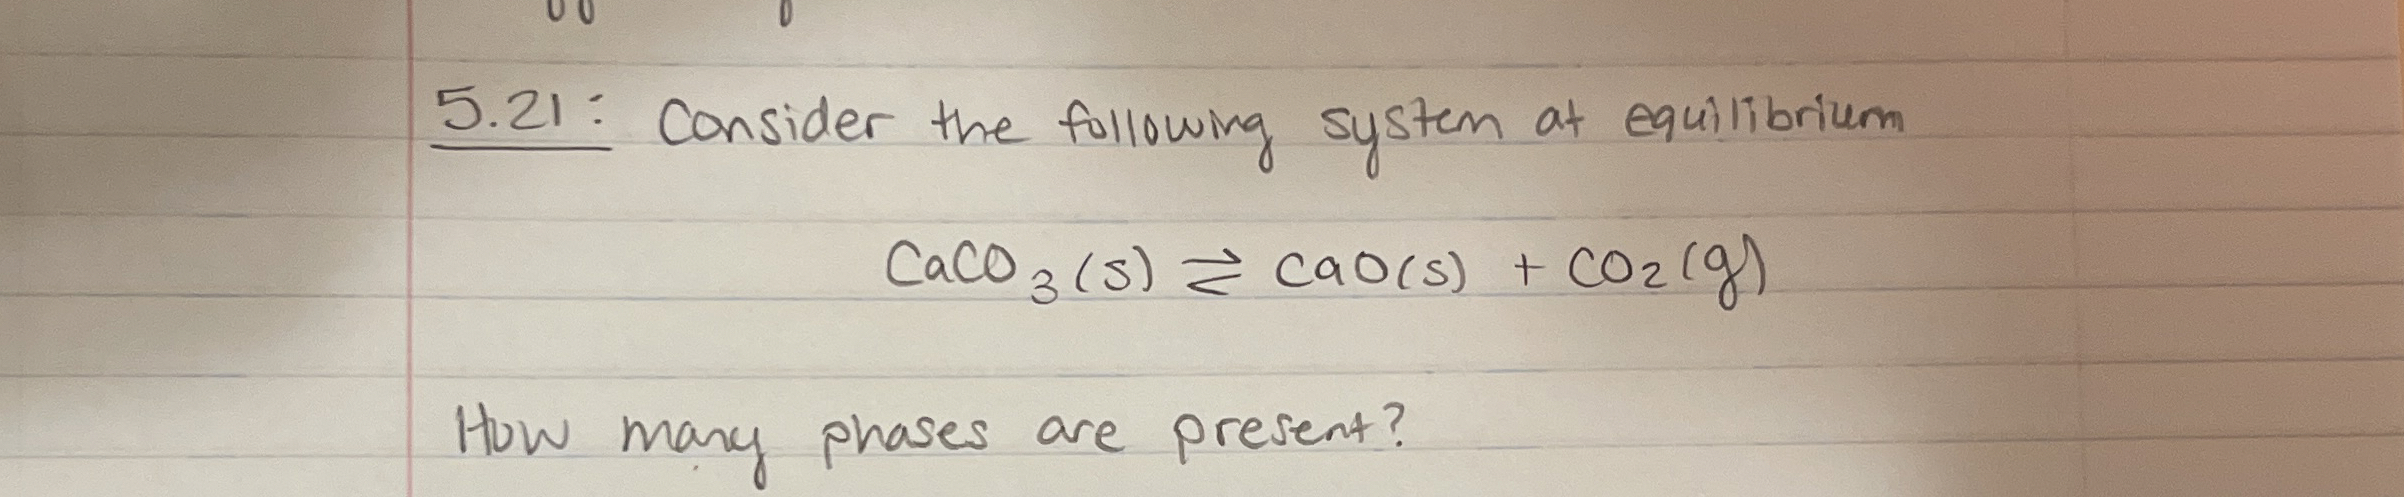 5.21: Consider the following system at equilibrium
CaCO₃(s) ⇌ CaO(s) + CO₂(g)
How many phases are present?